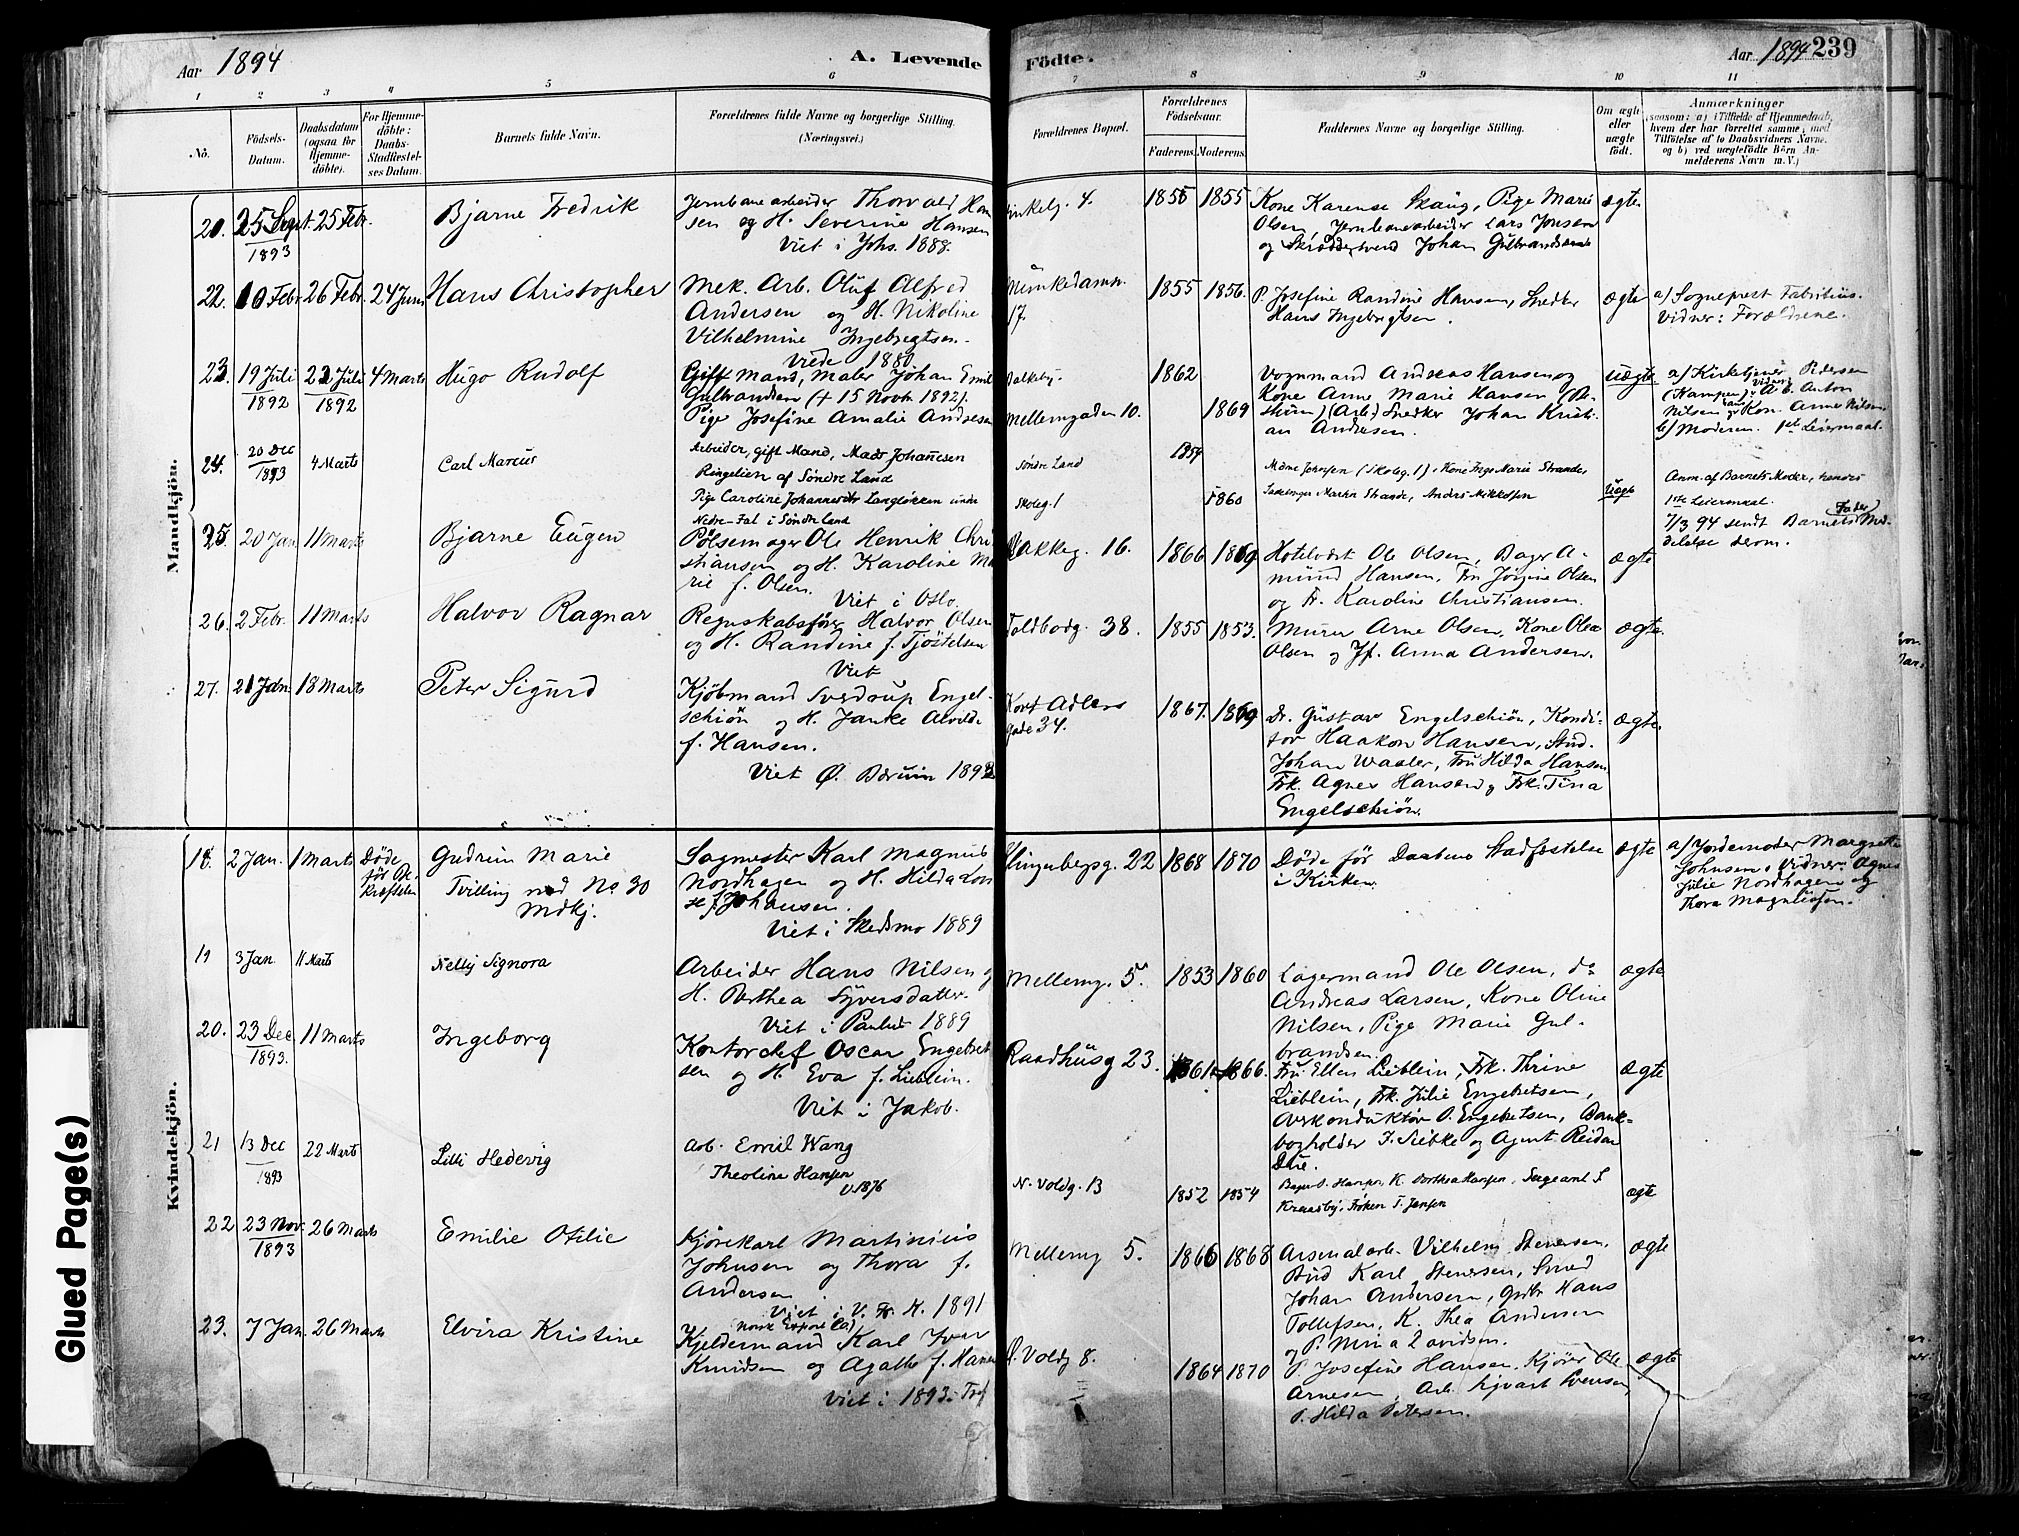 Aar 1894
A. Levende
Födte.
Aar 1894 239
1 2 3 4 5 6 7 8 9 10 11
No.
Födsels-Datum.
Daabsdatum (ogsaa for Hjemmedöbte).
For Hjemmedöbte: Daabs-Stadfæstelses Datum.
Barnets fulde Navn.
Forældrenes fulde Navne og borgerlige Stilling.
(Næringsvei.)
Forældrenes Bopæl.
Forældrenes Födselsaar.
Faderens. Moderens.
Faddernes Navne og borgerlige Stilling.
Om ægte eller uægte født.
Anmærkninger
(saasom: a) i Tilfælde af Hjemmedaab, hvem der har forrettet samme, med Tilföielse af to Daabsvidners Navne. og b) ved uægtefödte Börn Anmelderens Navn m. V.)
Mandkjön.
20. 25 Sept. 1893 25 Febr. Bjarne Fredrik
Jernbanearbeider Thorvald Han
sen og H. Severine Hansen
Viet i Johs. 1888.
4. 1855 1855
Kone Karense Skaug, Pige Marie
Olsen, Jernbanearbeider Lars Jonsen
og Skræddersvend Johan Gulbrandsen
ægte
22. 10 Febr. 26 Febr. 24 Juni Hans Christopher
Mek. Arb. Oluf Alfred
Andersen og H. Nikoline
Vilhelmine Ingebregtsen.
Viede 1880
Munkedamsv. 17. 1855 1856.
P. Josefine Randine Hansen, Snedker
Hans Ingebregtsen.
ægte
a) Sogneprest Fabritius.
Vidner: Forældrene.
23. 19 Juli 1892 23 Juli 1892 4 Marts Hugo Rudolf
Gift Mand, Maler Johan Emil
Gulbrandsen († 15 Novb. 1892).
Pige Josefine Amalie Andresen
Mellemgaden 10. 1862 1869
Vognmand Andreas Hansen og
Kone Anne Marie Hansen
(Arb.) Snedker Johan Kristi-
an Andresen.
uægte
a) Kirketjener Pedersen
(Kampen) Vidner: Anton
Nilsen og Kon. Anne Nilsen
b) Moderen. 1ste Leiermaal.
24. 20 Dec 1893 4 Marts Carl Marcus
Arbeider, gift Mand, Mads Johannesen
Ringelien af Søndre Land
Pige Caroline Johannesdtr Langløkken
i Sønderland
Søndre Land
Skoleg. 1
1854
1860
(Skoleg. 1), Kone Inge Marie Strande
Martin Strande, Anders Mikkelsen
Uægte
Anm. af Barnets Moder, hendes
1ste Leiermaal.
7/3 94 sendt Barnets Fader Med-
delelse derom.
25. 20 Jan 11 Marts Bjarne Eugen
Pølsemager Ole Henrik Chri
stiansen og H. Karoline Ma
rie f. Olsen.
Viet i Oslo.
Bakkeg. 16. 1866 1869
Hotelvært Ole Olsen, Bager A-
mund Hansen, Fru Jørgine Olsen
og Fr. Karoline Christiansen.
ægte
26. 2 Febr. 11 Marts Halvor Ragnar
Regnskabsfører Halvor Olsen
og H. Randine f. Tjøstelsen
Viet
Toldbodg. 38. 1855 1853.
Murer Arne Olsen, Kone Olea
Olsen og Jf. Anna Andersen.
ægte.
27. 21 Jan. 18 Marts Peter Sigurd
Kjøbmand Sverdrup Engel-
schiøn og H. Janke Alvilde
f. Hansen.
Viet Ø. Bærum 1892
Kort Adlers
gade 34. 1867. 1869
Dr. Gustav Engelschiøn, Kondi-
tor Haakon Hansen, Stud.
Johan Waaler, Fru Hilda Hansen
Frk. Agnes Hansen og Frk. Tina
Engelschiøn.
ægte.
Kvindekjön.
18. 2 Jan. 1 Marts Døde før Bekræftelsen
Gudrun Marie
Tvilling med No 30
Mdkj.
Sagmester Karl Magnus
Nordhagen og H. Hilda Lovi
se f. Johansen.
Viet i Skedsmo 1889
Klingenbergg. 22 1868 1870
Døde før Daabens Stadfæstelse
i Kirken.
ægte
a) Jordemoder Margrethe
Johnsen. Vidner: Agnes
Julie Nordhagen og
Thora Magnussen.
19 3 Jan. 11 Marts Nelly Signora
Arbeider Hans Nilsen og
H. Berthea Syversdatter.
Viet i Paulus 1889
Mellemg. 5. 1853 1860
Lagermand Ole Olsen, do
Andreas Larsen, Kone Oline
Nilsen, Pige Marie Gul-
brandsen.
ægte
20. 23 Dec 1893. 11 Marts Ingeborg
Kontorchef Oscar Engebret
sen og H. Eva f. Lieblein.
Viet i Jakob.
Raadhusg 23. 1861 1866.
Fru Ellen Lieblein, Frk. Thrine
Lieblein, Frk. Julie Engebretsen,
Overkonduktør O. Engebretsen, Bank-
bogholder J. Siebke og Agent Reidar
Due.
ægte
21 13 Dec 1893 22 Marts Lilli Hedevig
Arb. Emil Wang
Theoline Hansen
v. 1876
N. Voldg. 13 1852 1854
Hansen, K. Dorthea Hansen, Sergeant S
Frøken T. Jensen
ægte
22 23 Nov. 1893 26 Marts Emilie Otilie
Kjørekarl Martinius
Johnsen og Thora f.
Andersen
Viet i V. Fr. K. 1891
Mellemg 5. 1866 1868
Arsenalarb. Vilhelm Stenersen,
Bud Karl Stenersen, Smed
Johan Andersen, Hans
Tollefsen, K. Thea Andersen
og P. Mina Davidsen.
ægte
23. 7 Jan. 26 Marts Elvira Kristine
Kjeldermand Karl Ivar
Knudsen og Agathe f. Hansen
Viet i 1893. Tref
Ø. Voldg 8. 1864 1870
P. Josefine Hansen, Kjører Ole
Arnesen, Arb. Sigvart Svensen,
P. Hilda Petersen.
ægte
Glued Page(s)